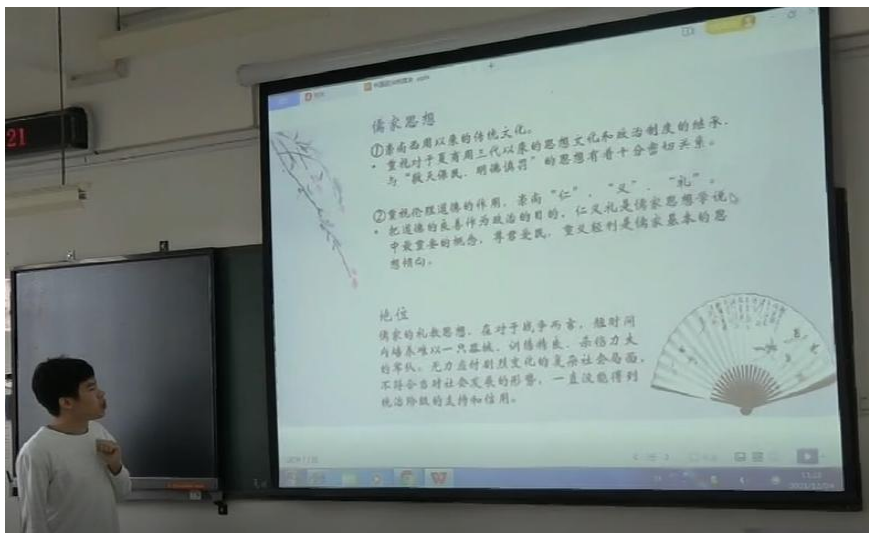 21
儒家思想
①崇尚西周以来的传统文化。
• 重视对于夏商周三代以来的思想文化和政治制度的继承,
与“敬天保民、明德慎罚”的思想有着十分密切关系。
②重视伦理道德的作用,崇尚“仁”、“义”、“礼”。
• 把道德的良善作为政治的目的,仁义礼是儒家思想学说
中最重要的概念,尊君爱民,重义轻利是儒家基本的思
想倾向。
地位
儒家的礼教思想,在对于战争而言,短时间
内培养难以一只器械、训练精良、杀伤力大
的军队,无力应付剧烈变化的复杂社会局面,
不符合当时社会发展的形势,一直没能得到
统治阶级的支持和信用。